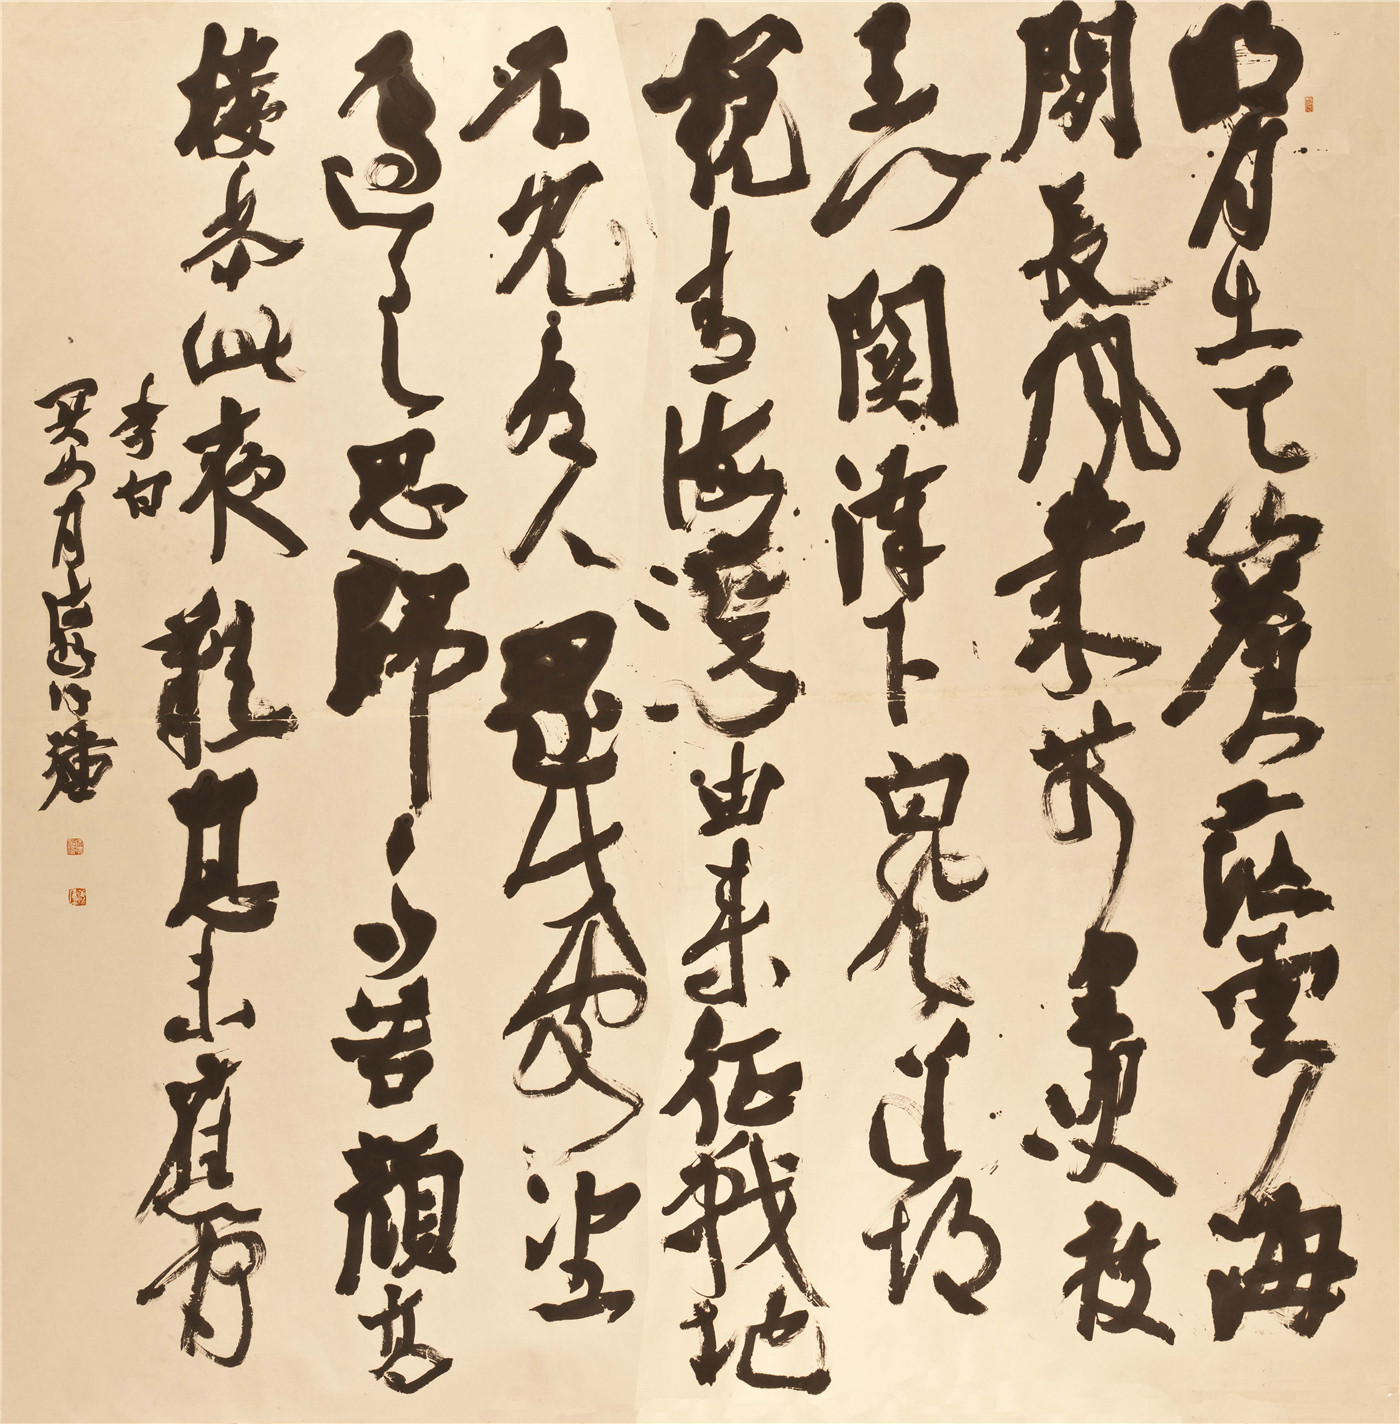 明月出天山蒼茫雲海
間長風幾萬里吹度
玉門關漢下白登道胡
窺青海灣由来征戰地
不見有人還戍客望
邊色思歸多苦顏高
樓當此夜歎息未應閑
李白
關山月